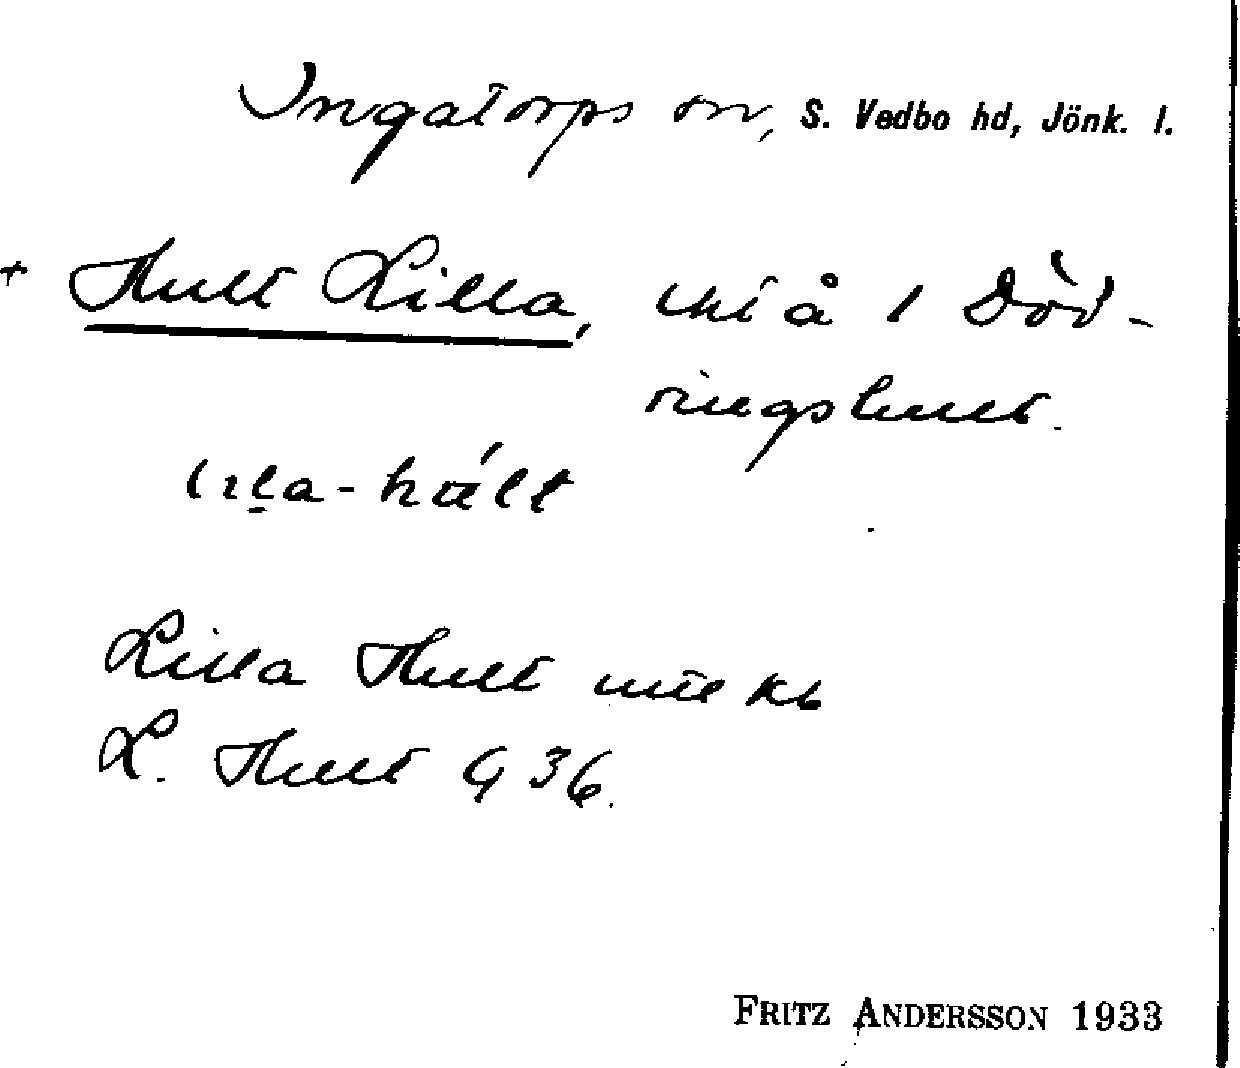 Ingatorps sn, S. Vedbo hd, Jönk. l.
+ Hult Lilla, tht å 1 Död-
ringshult.
lıl̠a-húlt
Lilla Hult mtl kb
L. Hult G 36.
FRITZ ANDERSSON 1933